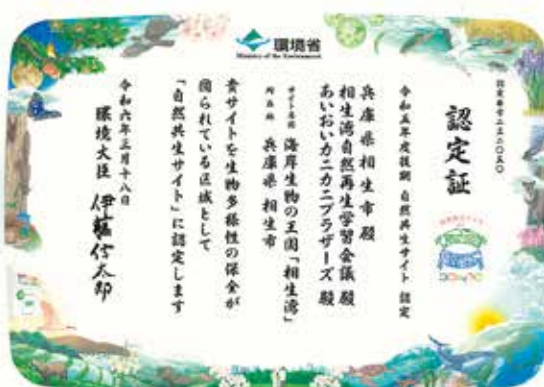 環境省
Ministry of the Environment
認定証
令和五年度後期 自然共生サイト 認定
兵庫県相生市 殿
相生湾自然再生学習会議 殿
あいおいカニカニブラザーズ 殿
サイト名称 海岸生物の王国「相生湾」
所在地 兵庫県 相生市
貴サイトを生物多様性の保全が
図られている区域として
「自然共生サイト」に認定します
令和六年三月十八日
環境大臣 伊藤信太郎